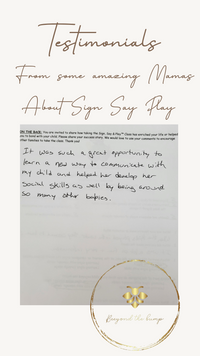 Testimonials
From some amazing Mamas
About Sign Say Play
ON THE BACK: You are invited to share how taking the Sign, Say & Play™ Class has enriched your life or helped
you to bond with your child. Please share your success story. We would love to use your comments to encourage
other families to take the class. Thank you!
It was such a great opportunity to
learn a new way to communicate with
my child and helped her develop her
social skills as well by being around
so many other babies.
Beyond the bump